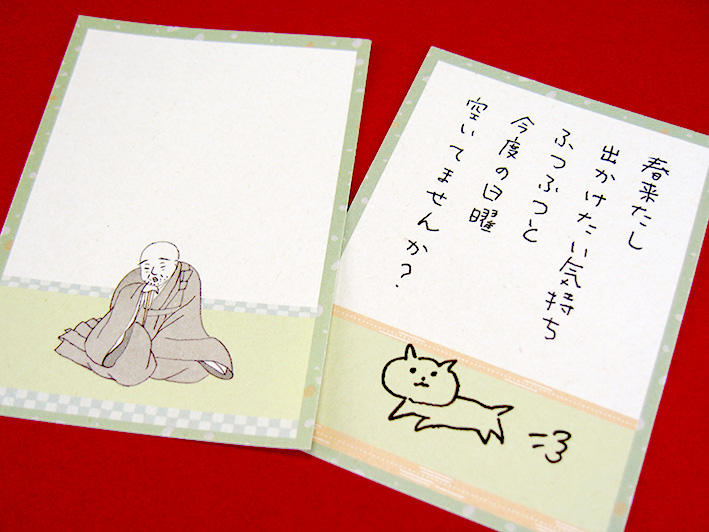 春来たし
出かけたい気持ち
ふつふつと
今度の日曜
空いてませんか?